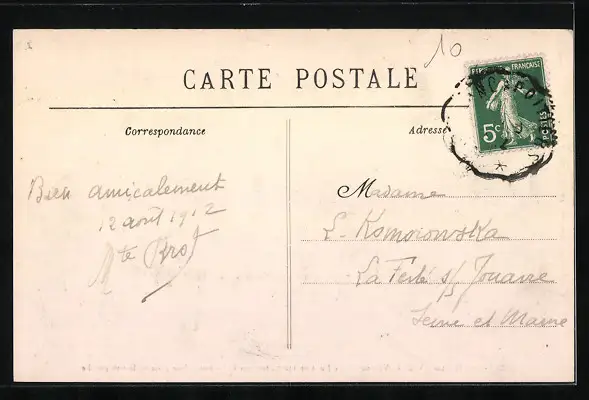 10
CARTE POSTALE
Correspondance
Adresse
RÉPUB FRANÇAISE
5c
POSTES
Bien amicalement
12 août 1912
Mte Brot
Madame
L. Komorowska
La Ferté s/ Jouarre
Seine et Marne